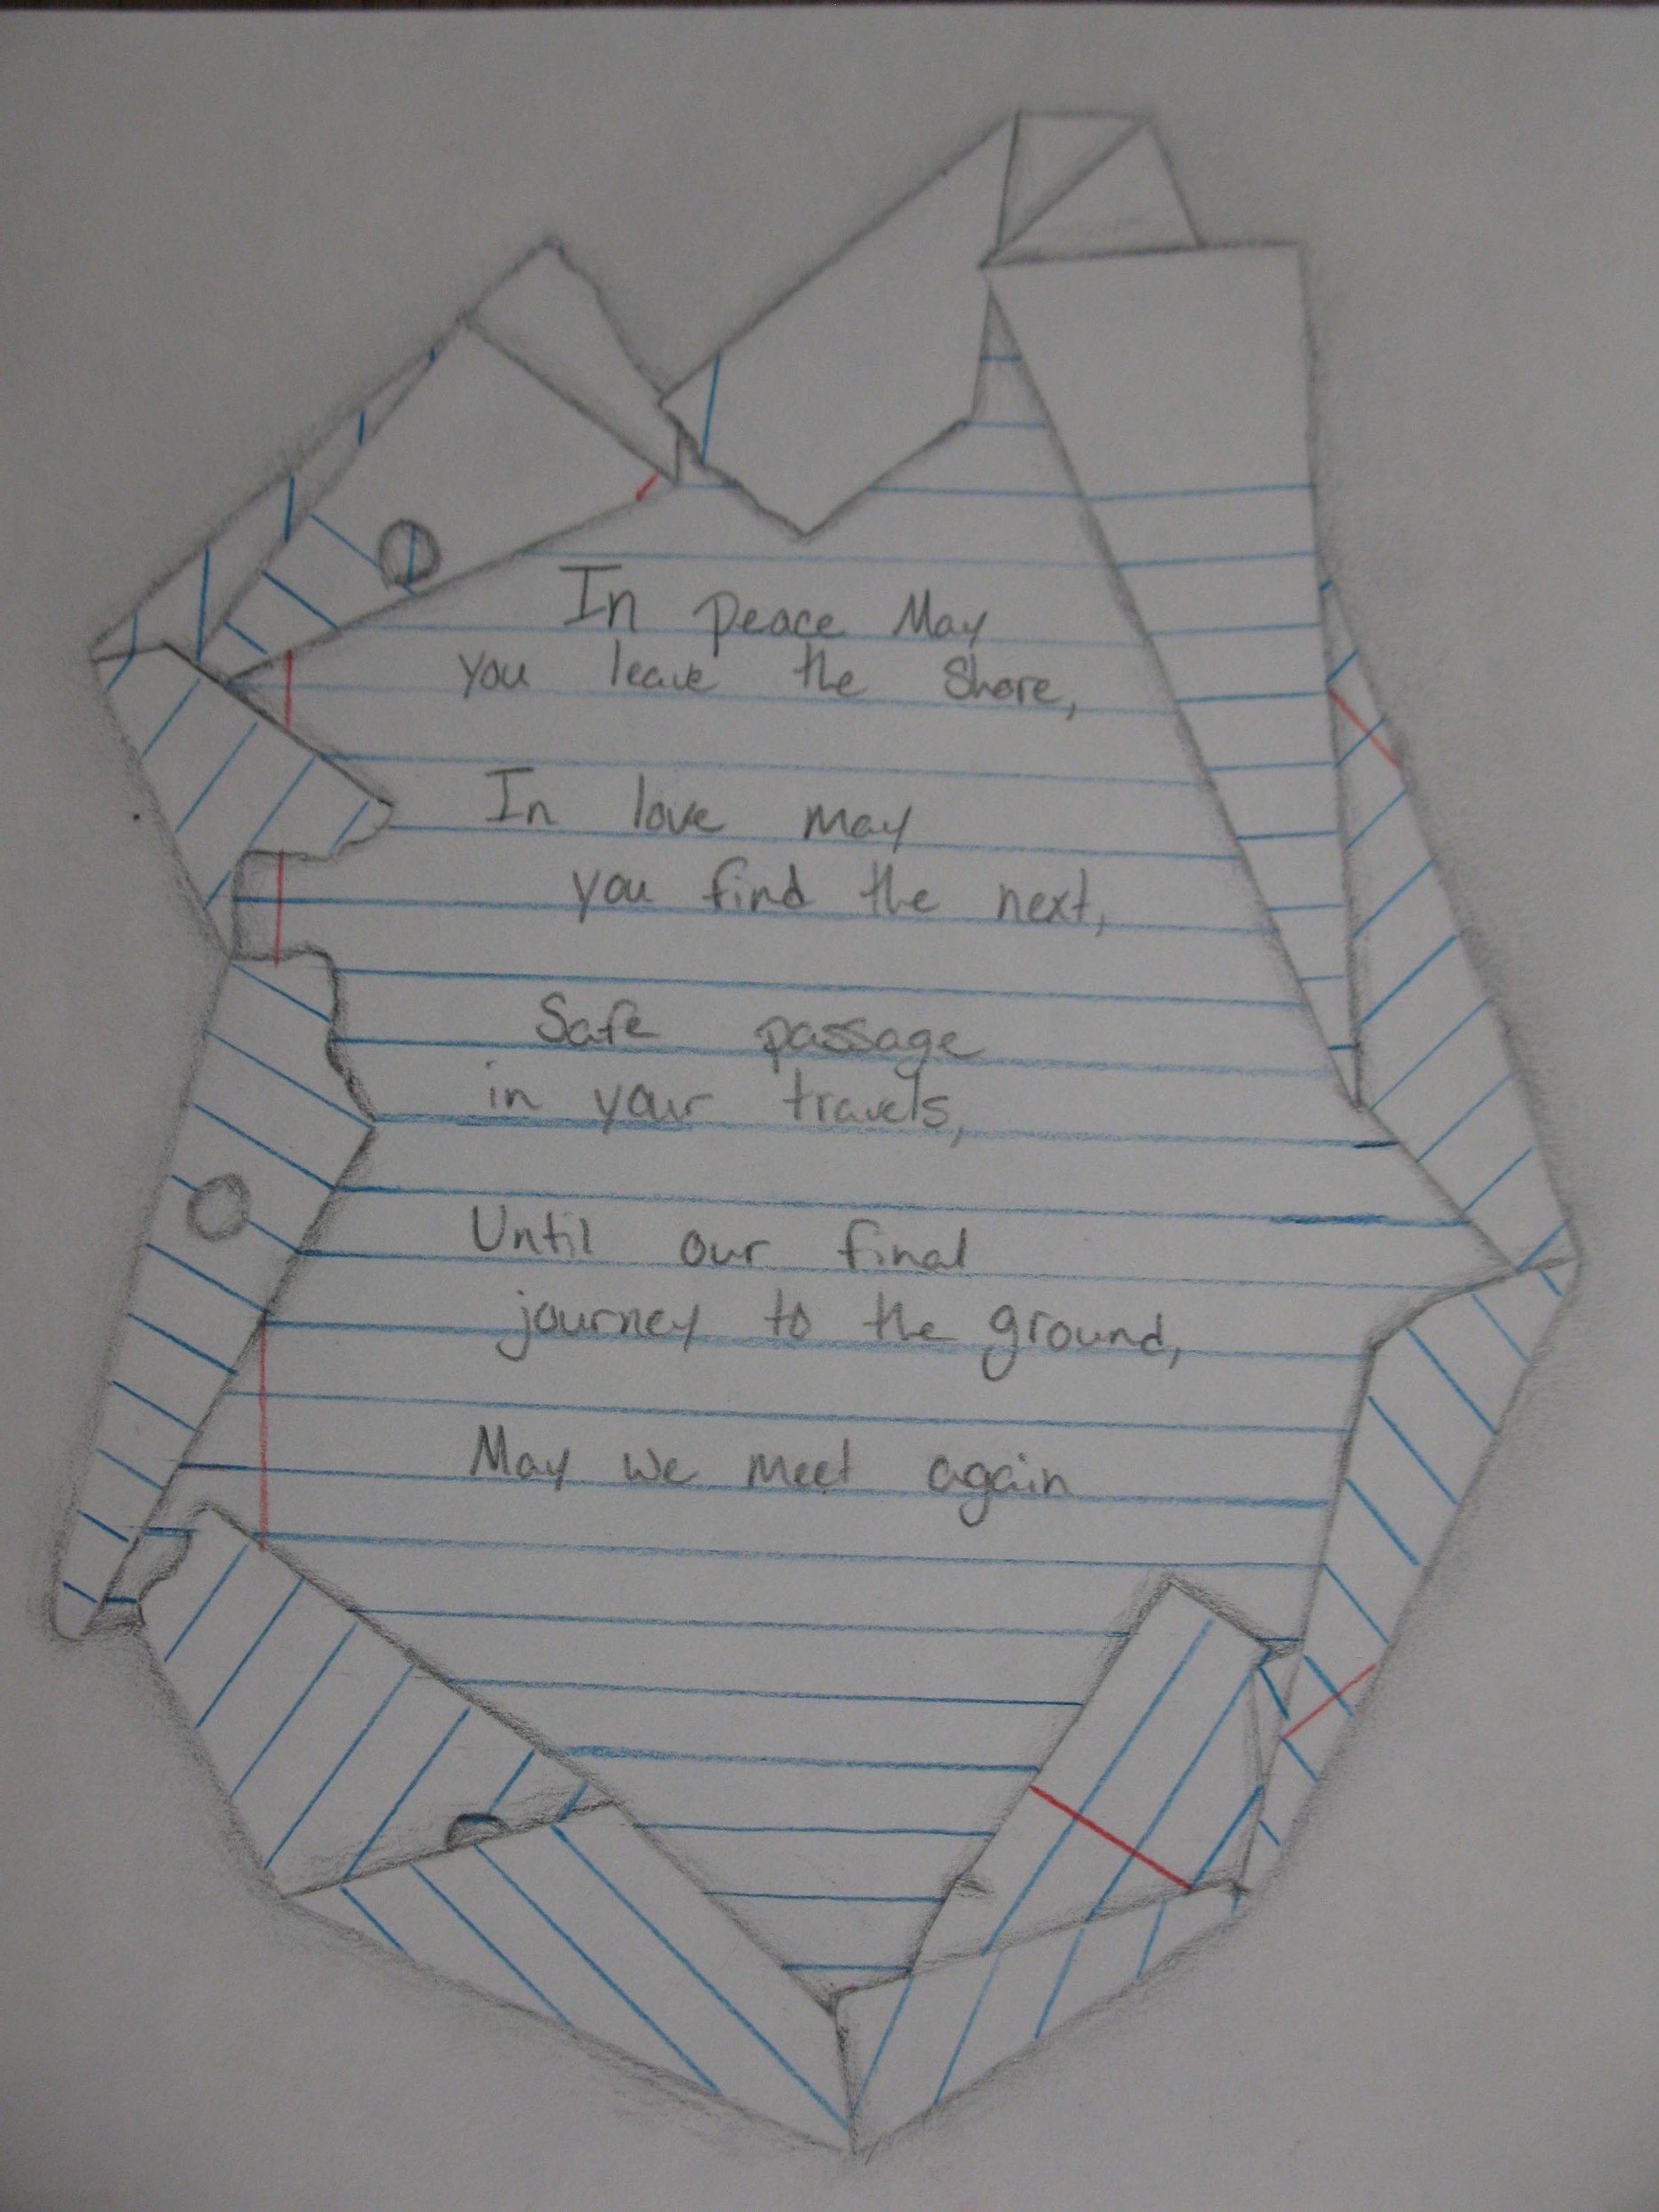 In peace May
you leave the Shore,
In love may
you find the next,
Safe passage
in your travels,
Until our final
journey to the ground,
May we meet again